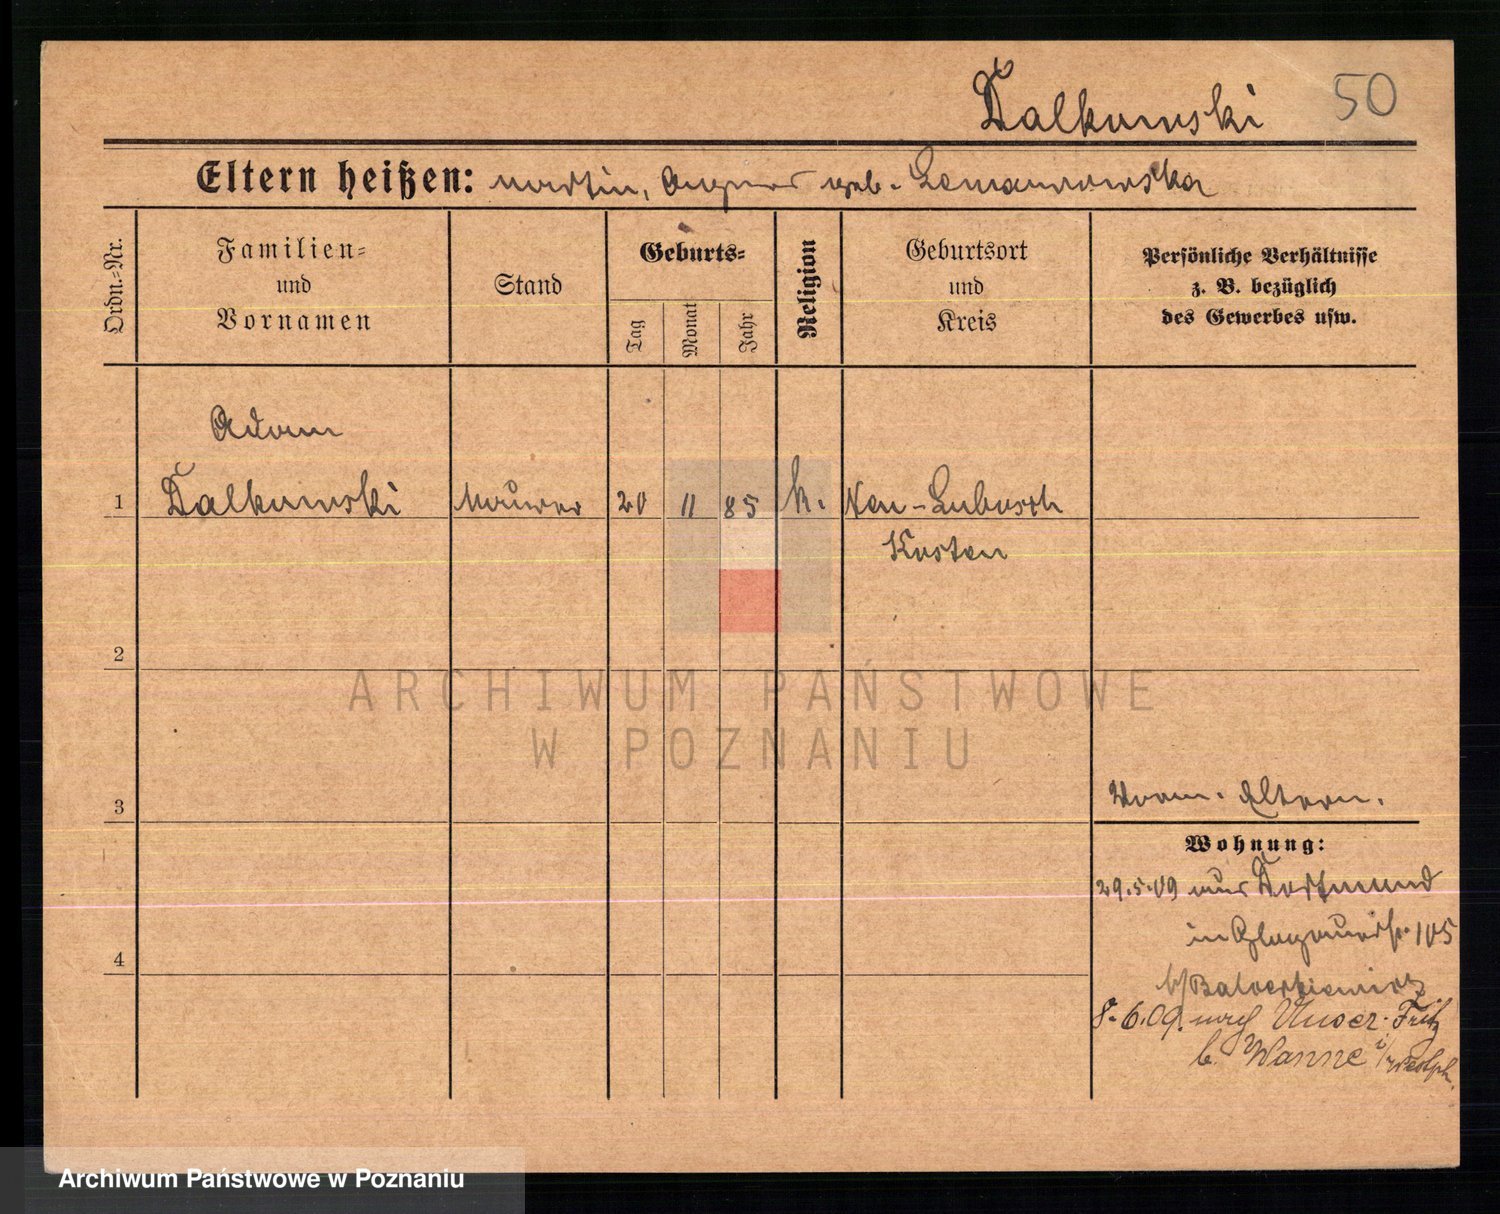 Dalkowski
50
Eltern heißen: Martin, Agnes geb. Lemanowska
Ordn.-Nr.
Familien-
und
Vornamen
Stand
Geburts-
Tag
Monat
Jahr
Religion
Geburtsort
und
Kreis
Persönliche Verhältnisse
z. B. bezüglich
des Gewerbes usw.
Adam
1 Dalkowski Maurer 20 11 85 k. Neu-Lubosch
Kosten
2
3
Vorm. Eltern.
Wohnung:
29.5.09 aus Dortmund
in Glogauerstr. 105
4
b/
8.6.09. nach Unser-Fritz
b. Wanne i/Westph.
ARCHIWUM PAŃSTWOWE
W POZNANIU
Archiwum Państwowe w Poznaniu